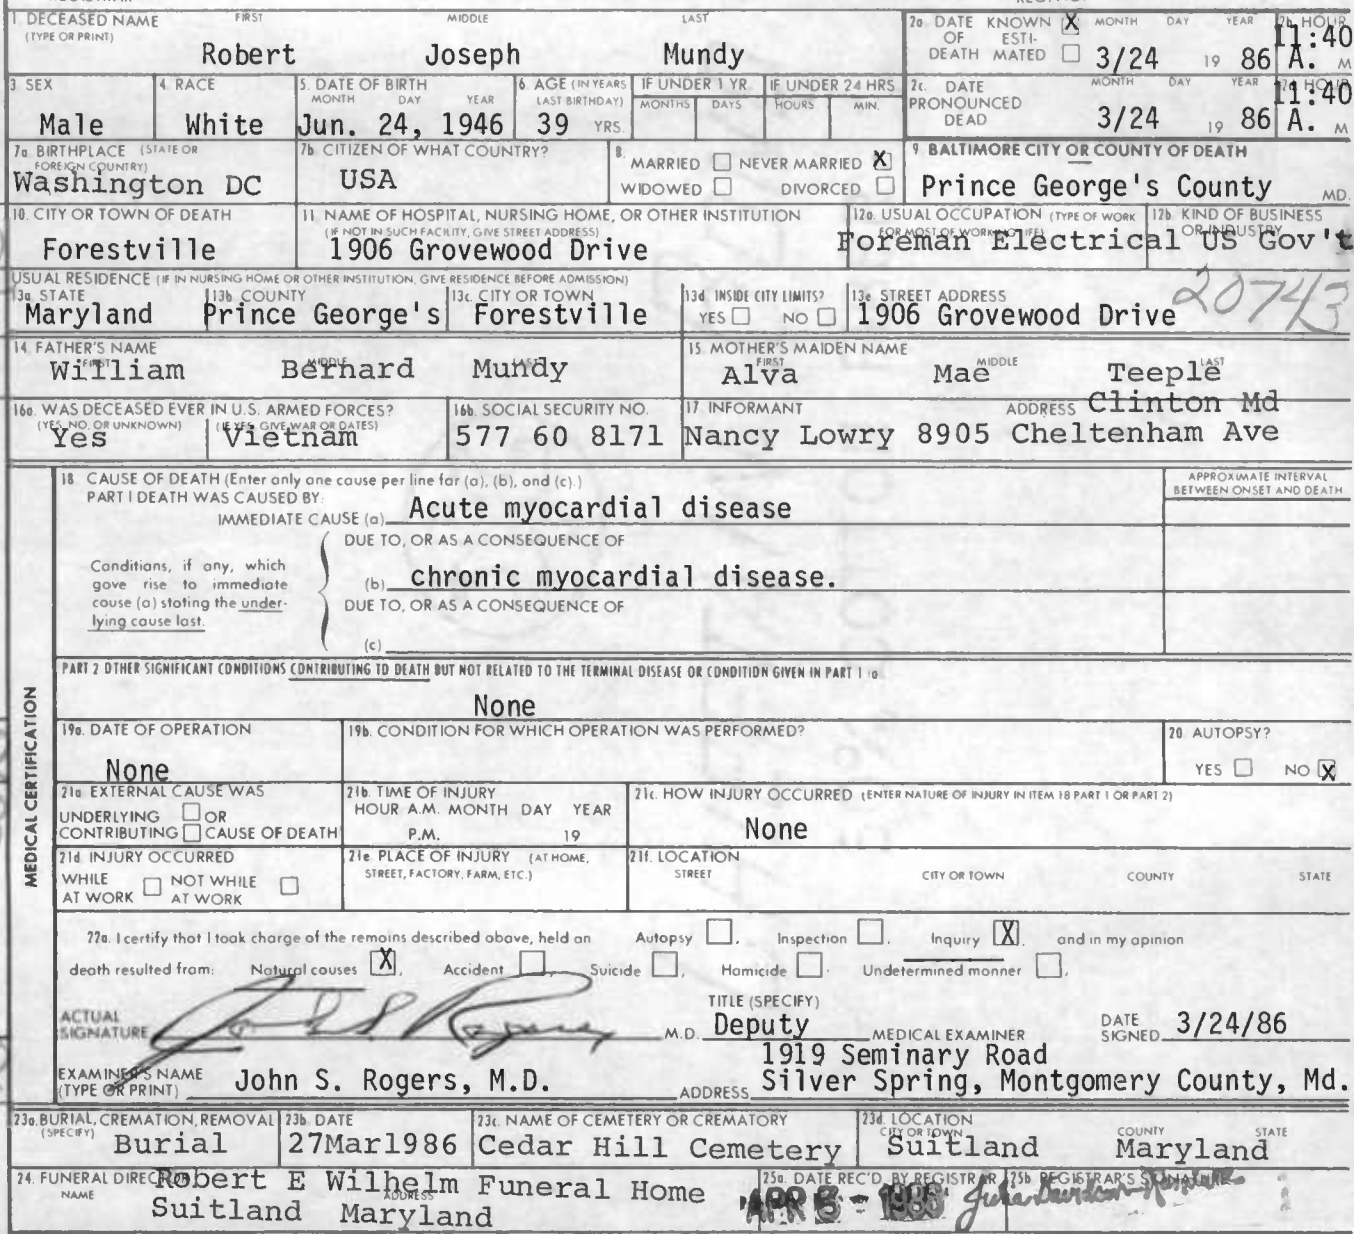 1. DECEASED NAME (TYPE OR PRINT) FIRST MIDDLE LAST
Robert Joseph Mundy
2a. DATE OF DEATH KNOWN X ESTIMATED MONTH DAY YEAR 3/24 19 86
2b. HOUR 11:40 A. M
3 SEX Male
4. RACE White
5. DATE OF BIRTH MONTH DAY YEAR Jun. 24, 1946
6. AGE (IN YEARS LAST BIRTHDAY) 39 YRS.
IF UNDER 1 YR. MONTHS DAYS
IF UNDER 24 HRS HOURS MIN.
2c. DATE PRONOUNCED DEAD MONTH DAY YEAR 3/24 19 86
HOUR 11:40 A. M
7a BIRTHPLACE (STATE OR FOREIGN COUNTRY) Washington DC
7b. CITIZEN OF WHAT COUNTRY? USA
8. MARRIED NEVER MARRIED X
WIDOWED DIVORCED
9. BALTIMORE CITY OR COUNTY OF DEATH
Prince George's County MD.
10. CITY OR TOWN OF DEATH Forestville
11. NAME OF HOSPITAL, NURSING HOME, OR OTHER INSTITUTION
(IF NOT IN SUCH FACILITY, GIVE STREET ADDRESS)
1906 Grovewood Drive
12a. USUAL OCCUPATION (TYPE OF WORK FOR MOST OF WORKING LIFE) Foreman Electrical
12b. KIND OF BUSINESS OR INDUSTRY US Gov't
USUAL RESIDENCE (IF IN NURSING HOME OR OTHER INSTITUTION, GIVE RESIDENCE BEFORE ADMISSION)
13a. STATE Maryland
13b. COUNTY Prince George's
13c. CITY OR TOWN Forestville
13d. INSIDE CITY LIMITS? YES NO
13e STREET ADDRESS 1906 Grovewood Drive 20743
14. FATHER'S NAME FIRST MIDDLE LAST
William Bernard Mundy
15. MOTHER'S MAIDEN NAME FIRST MIDDLE LAST
Alva Mae Teeple
16a. WAS DECEASED EVER IN U.S. ARMED FORCES?
(YES, NO, OR UNKNOWN) (IF YES, GIVE WAR OR DATES)
Yes Vietnam
16b. SOCIAL SECURITY NO. 577 60 8171
17. INFORMANT ADDRESS Clinton Md
Nancy Lowry 8905 Cheltenham Ave
MEDICAL CERTIFICATION
18 CAUSE OF DEATH (Enter only one cause per line for (a), (b), and (c).)
APPROXIMATE INTERVAL BETWEEN ONSET AND DEATH
PART I DEATH WAS CAUSED BY:
IMMEDIATE CAUSE (a) Acute myocardial disease
DUE TO, OR AS A CONSEQUENCE OF
Conditions, if any, which gave rise to immediate cause (a) stating the underlying cause last.
(b) chronic myocardial disease.
DUE TO, OR AS A CONSEQUENCE OF
(c)
PART 2 OTHER SIGNIFICANT CONDITIONS CONTRIBUTING TO DEATH BUT NOT RELATED TO THE TERMINAL DISEASE OR CONDITION GIVEN IN PART 1 (a)
None
19a. DATE OF OPERATION None
19b. CONDITION FOR WHICH OPERATION WAS PERFORMED?
20. AUTOPSY? YES NO X
21a EXTERNAL CAUSE WAS
UNDERLYING OR
CONTRIBUTING CAUSE OF DEATH
21b. TIME OF INJURY
HOUR A.M. MONTH DAY YEAR
P.M. 19
21c. HOW INJURY OCCURRED (ENTER NATURE OF INJURY IN ITEM 18 PART 1 OR PART 2)
None
21d INJURY OCCURRED
WHILE AT WORK NOT WHILE AT WORK
21e PLACE OF INJURY (AT HOME, STREET, FACTORY, FARM, ETC.)
21f. LOCATION
STREET CITY OR TOWN COUNTY STATE
22a. I certify that I took charge of the remains described above, held an Autopsy , Inspection , Inquiry X , and in my opinion
death resulted from: Natural causes X , Accident , Suicide , Homicide , Undetermined manner ,
ACTUAL SIGNATURE John S. Rogers M.D.
TITLE (SPECIFY) Deputy MEDICAL EXAMINER
DATE SIGNED 3/24/86
EXAMINER'S NAME (TYPE OR PRINT) John S. Rogers, M.D.
ADDRESS 1919 Seminary Road
Silver Spring, Montgomery County, Md.
23a. BURIAL, CREMATION, REMOVAL (SPECIFY) Burial
23b. DATE 27Mar1986
23c. NAME OF CEMETERY OR CREMATORY Cedar Hill Cemetery
23d. LOCATION CITY OR TOWN COUNTY STATE
Suitland Maryland
24. FUNERAL DIRECTOR NAME ADDRESS
Robert E Wilhelm Funeral Home
Suitland Maryland
25a. DATE REC'D. BY REGISTRAR
25b. REGISTRAR'S SIGNATURE